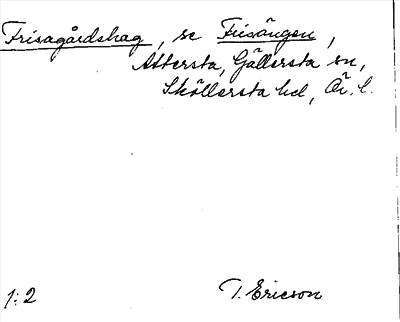 Frisagårdshag, se Frisängen,
Attersta, Gällersta sn,
Sköllersta hd, Ör. l.
1:2 T. Ericson